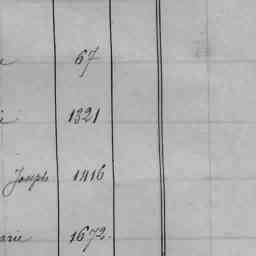 67
1321
Joseph 1416
1672.